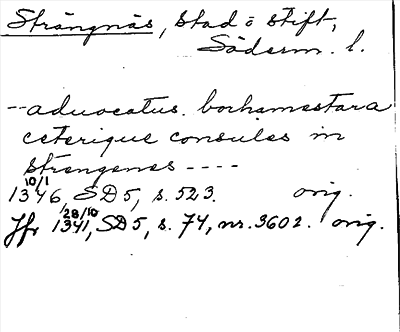 Strängnäs, stad o stift,
Söderm. l.
-- aduocatus. borhamestara
ceterique consules in
strengenes ----
10/1
1346, SD5, s. 523. orig.
28/10
Jfr 1341, SD5, s. 74, nr. 3602. orig.